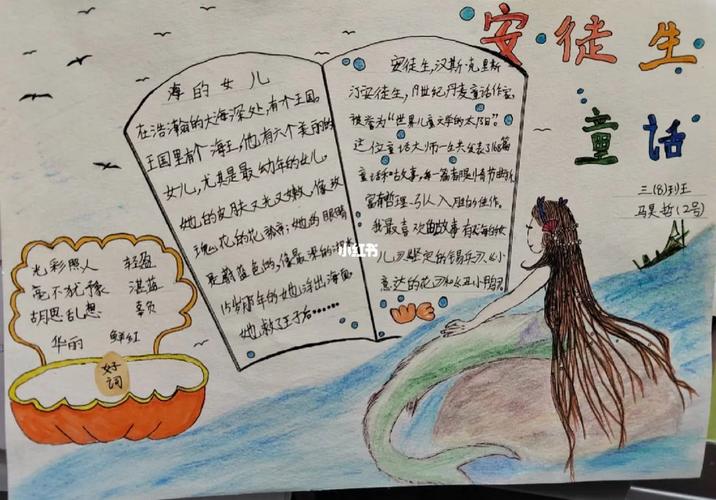 安徒生
童话
三(8)班王
马昊哲(2号)
海的女儿
在浩瀚的大海深处,有个王国。
王国里有个海王,他有六个美丽的
女儿,尤其是最幼年的女儿。
她的皮肤又光又嫩,像玫
瑰花的花瓣;她的眼睛
是蔚蓝色的,像最深的湖水
15岁那年的她浮出海面
她救了王子后……
安徒生,汉斯·克里斯
汀安徒生,19世纪丹麦童话作家,
被誉为“世界儿童文学的太阳”。
这位童话大师一生共发表了168篇
童话和故事,每一篇都是情节曲折
富有哲理,引人入胜的佳作。
我最喜欢的故事有《海的女
儿》《坚定的锡兵》《小
意达的花》《丑小鸭》
光彩照人 轻盈
毫不犹豫 湛蓝
胡思乱想 辜负
华丽 鲜红
好
词
小红书